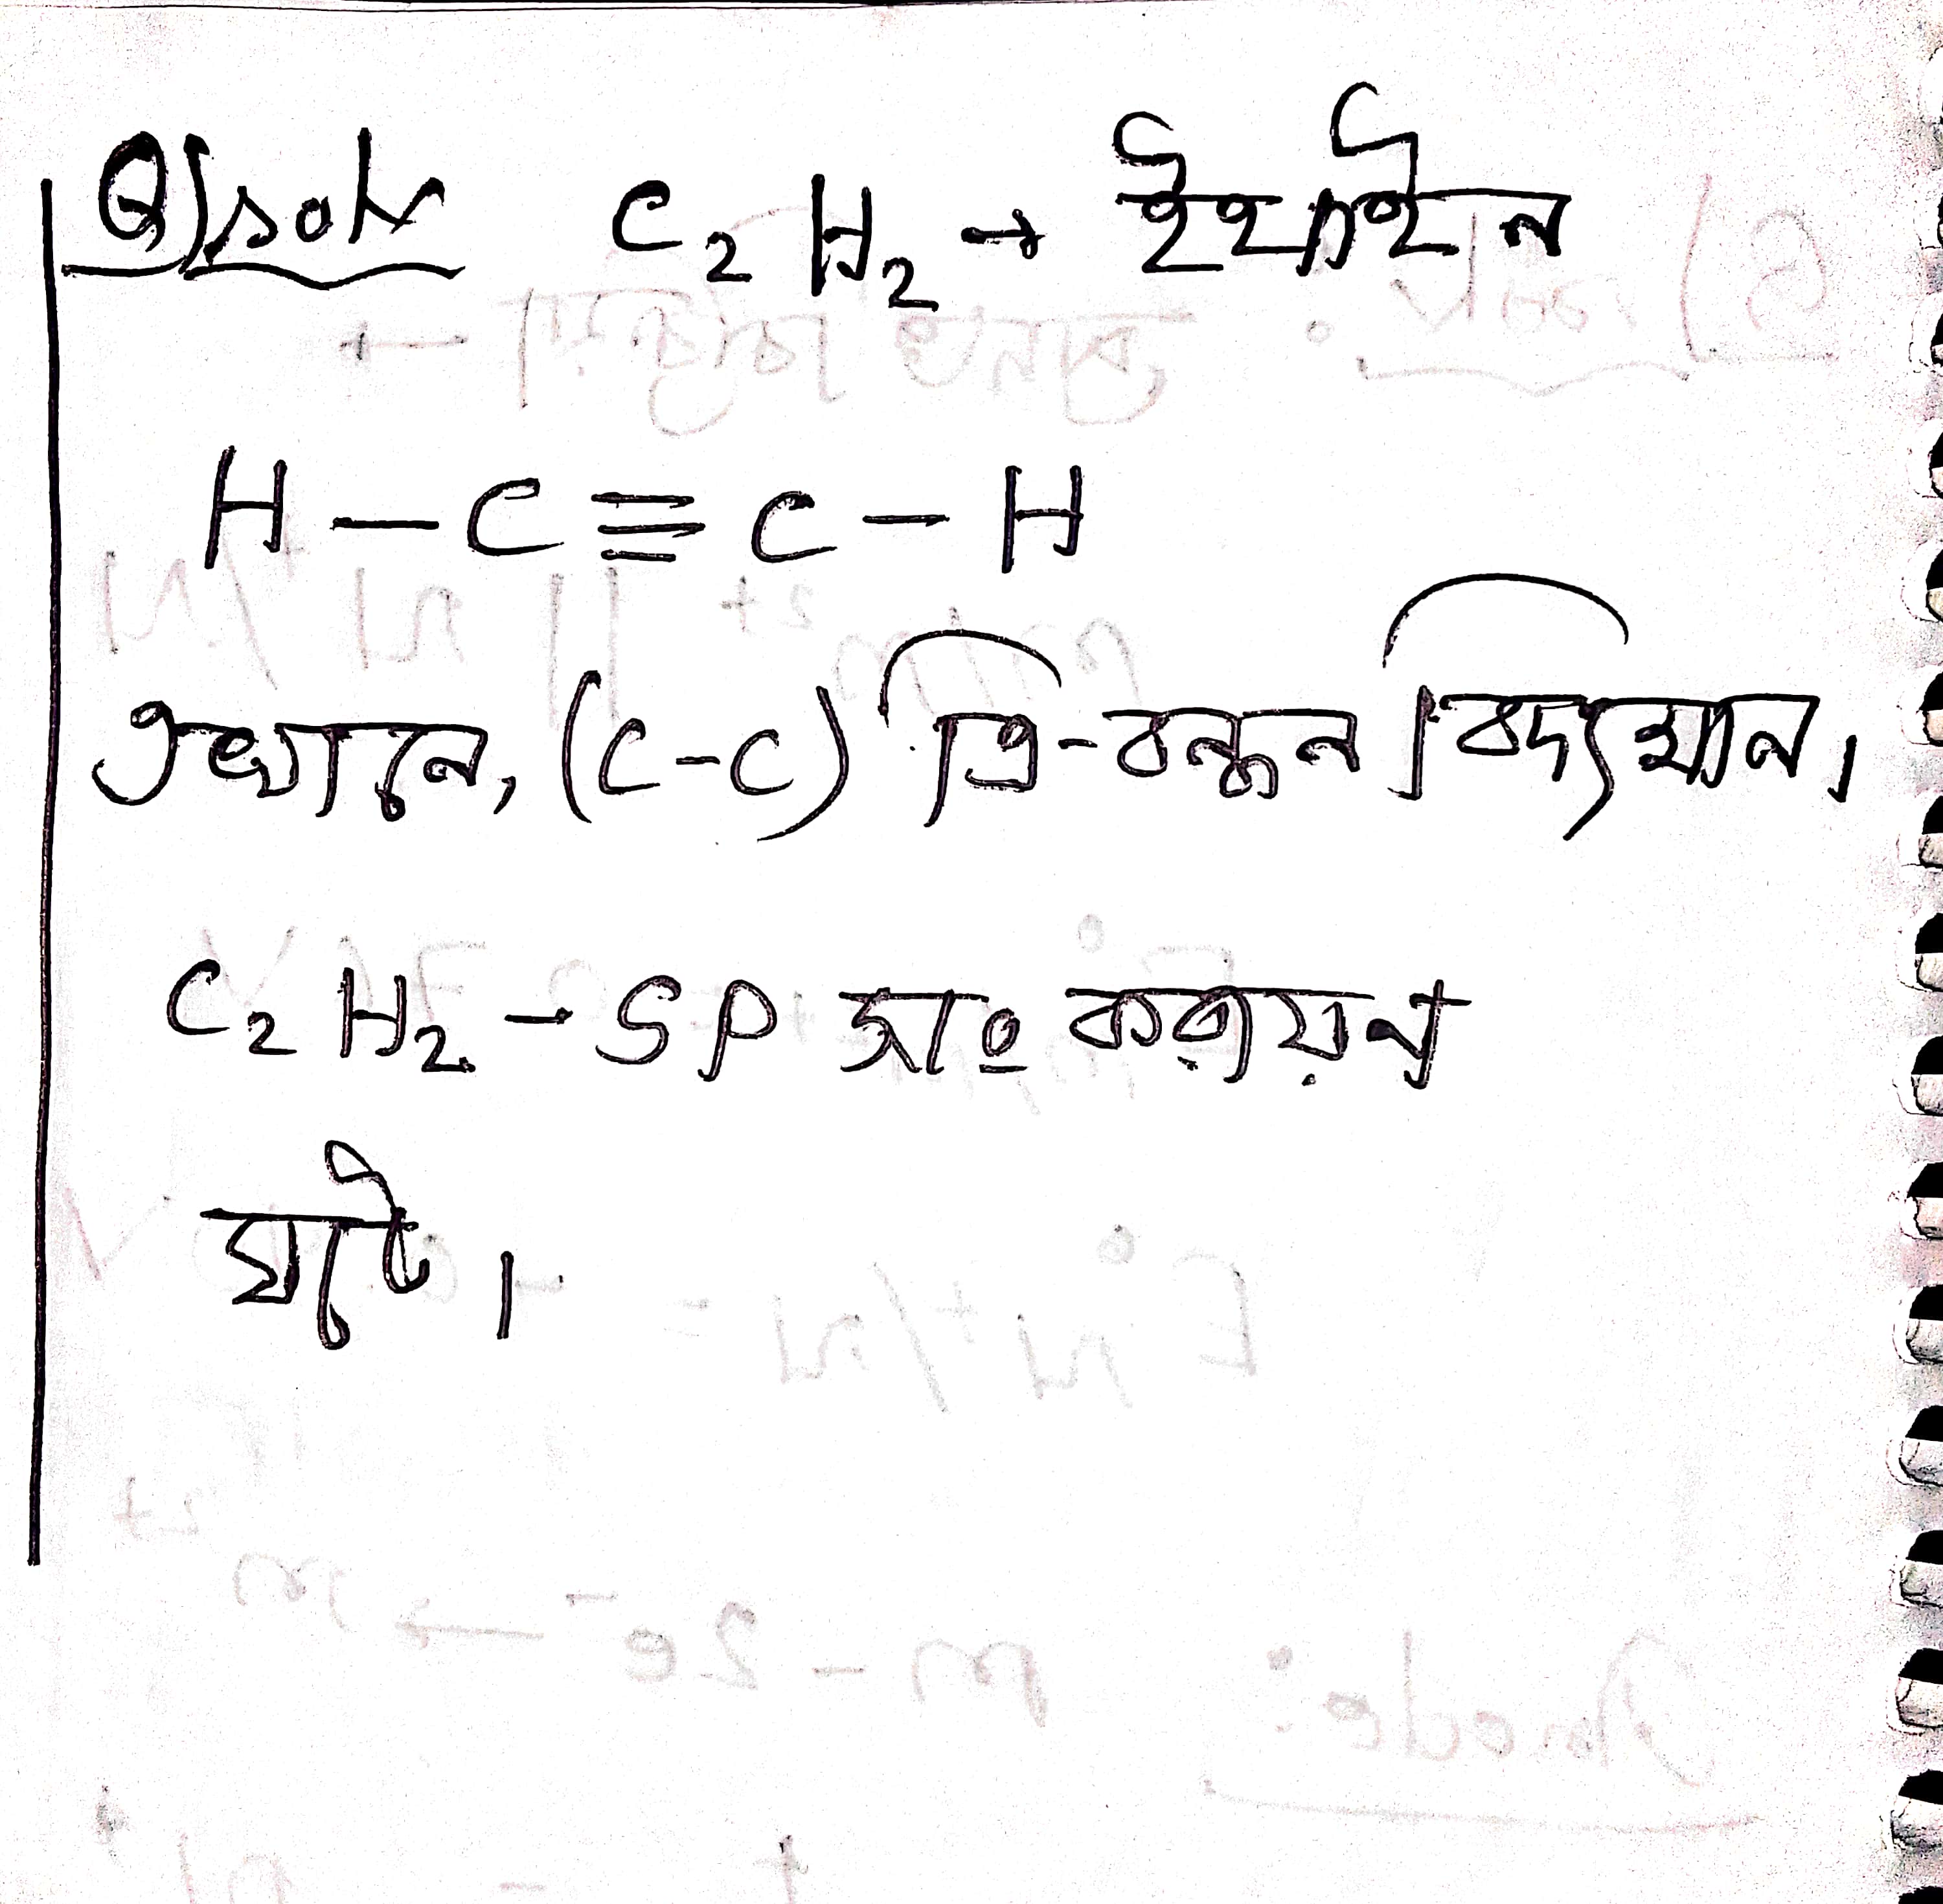 Q) solⁿ C₂H₂ → ইথাইন
H – C ≡ C – H
এখানে, (C-C) ত্রি-বন্ধন বিদ্যমান।
C₂H₂ - SP সংকরায়ন
ঘটে।